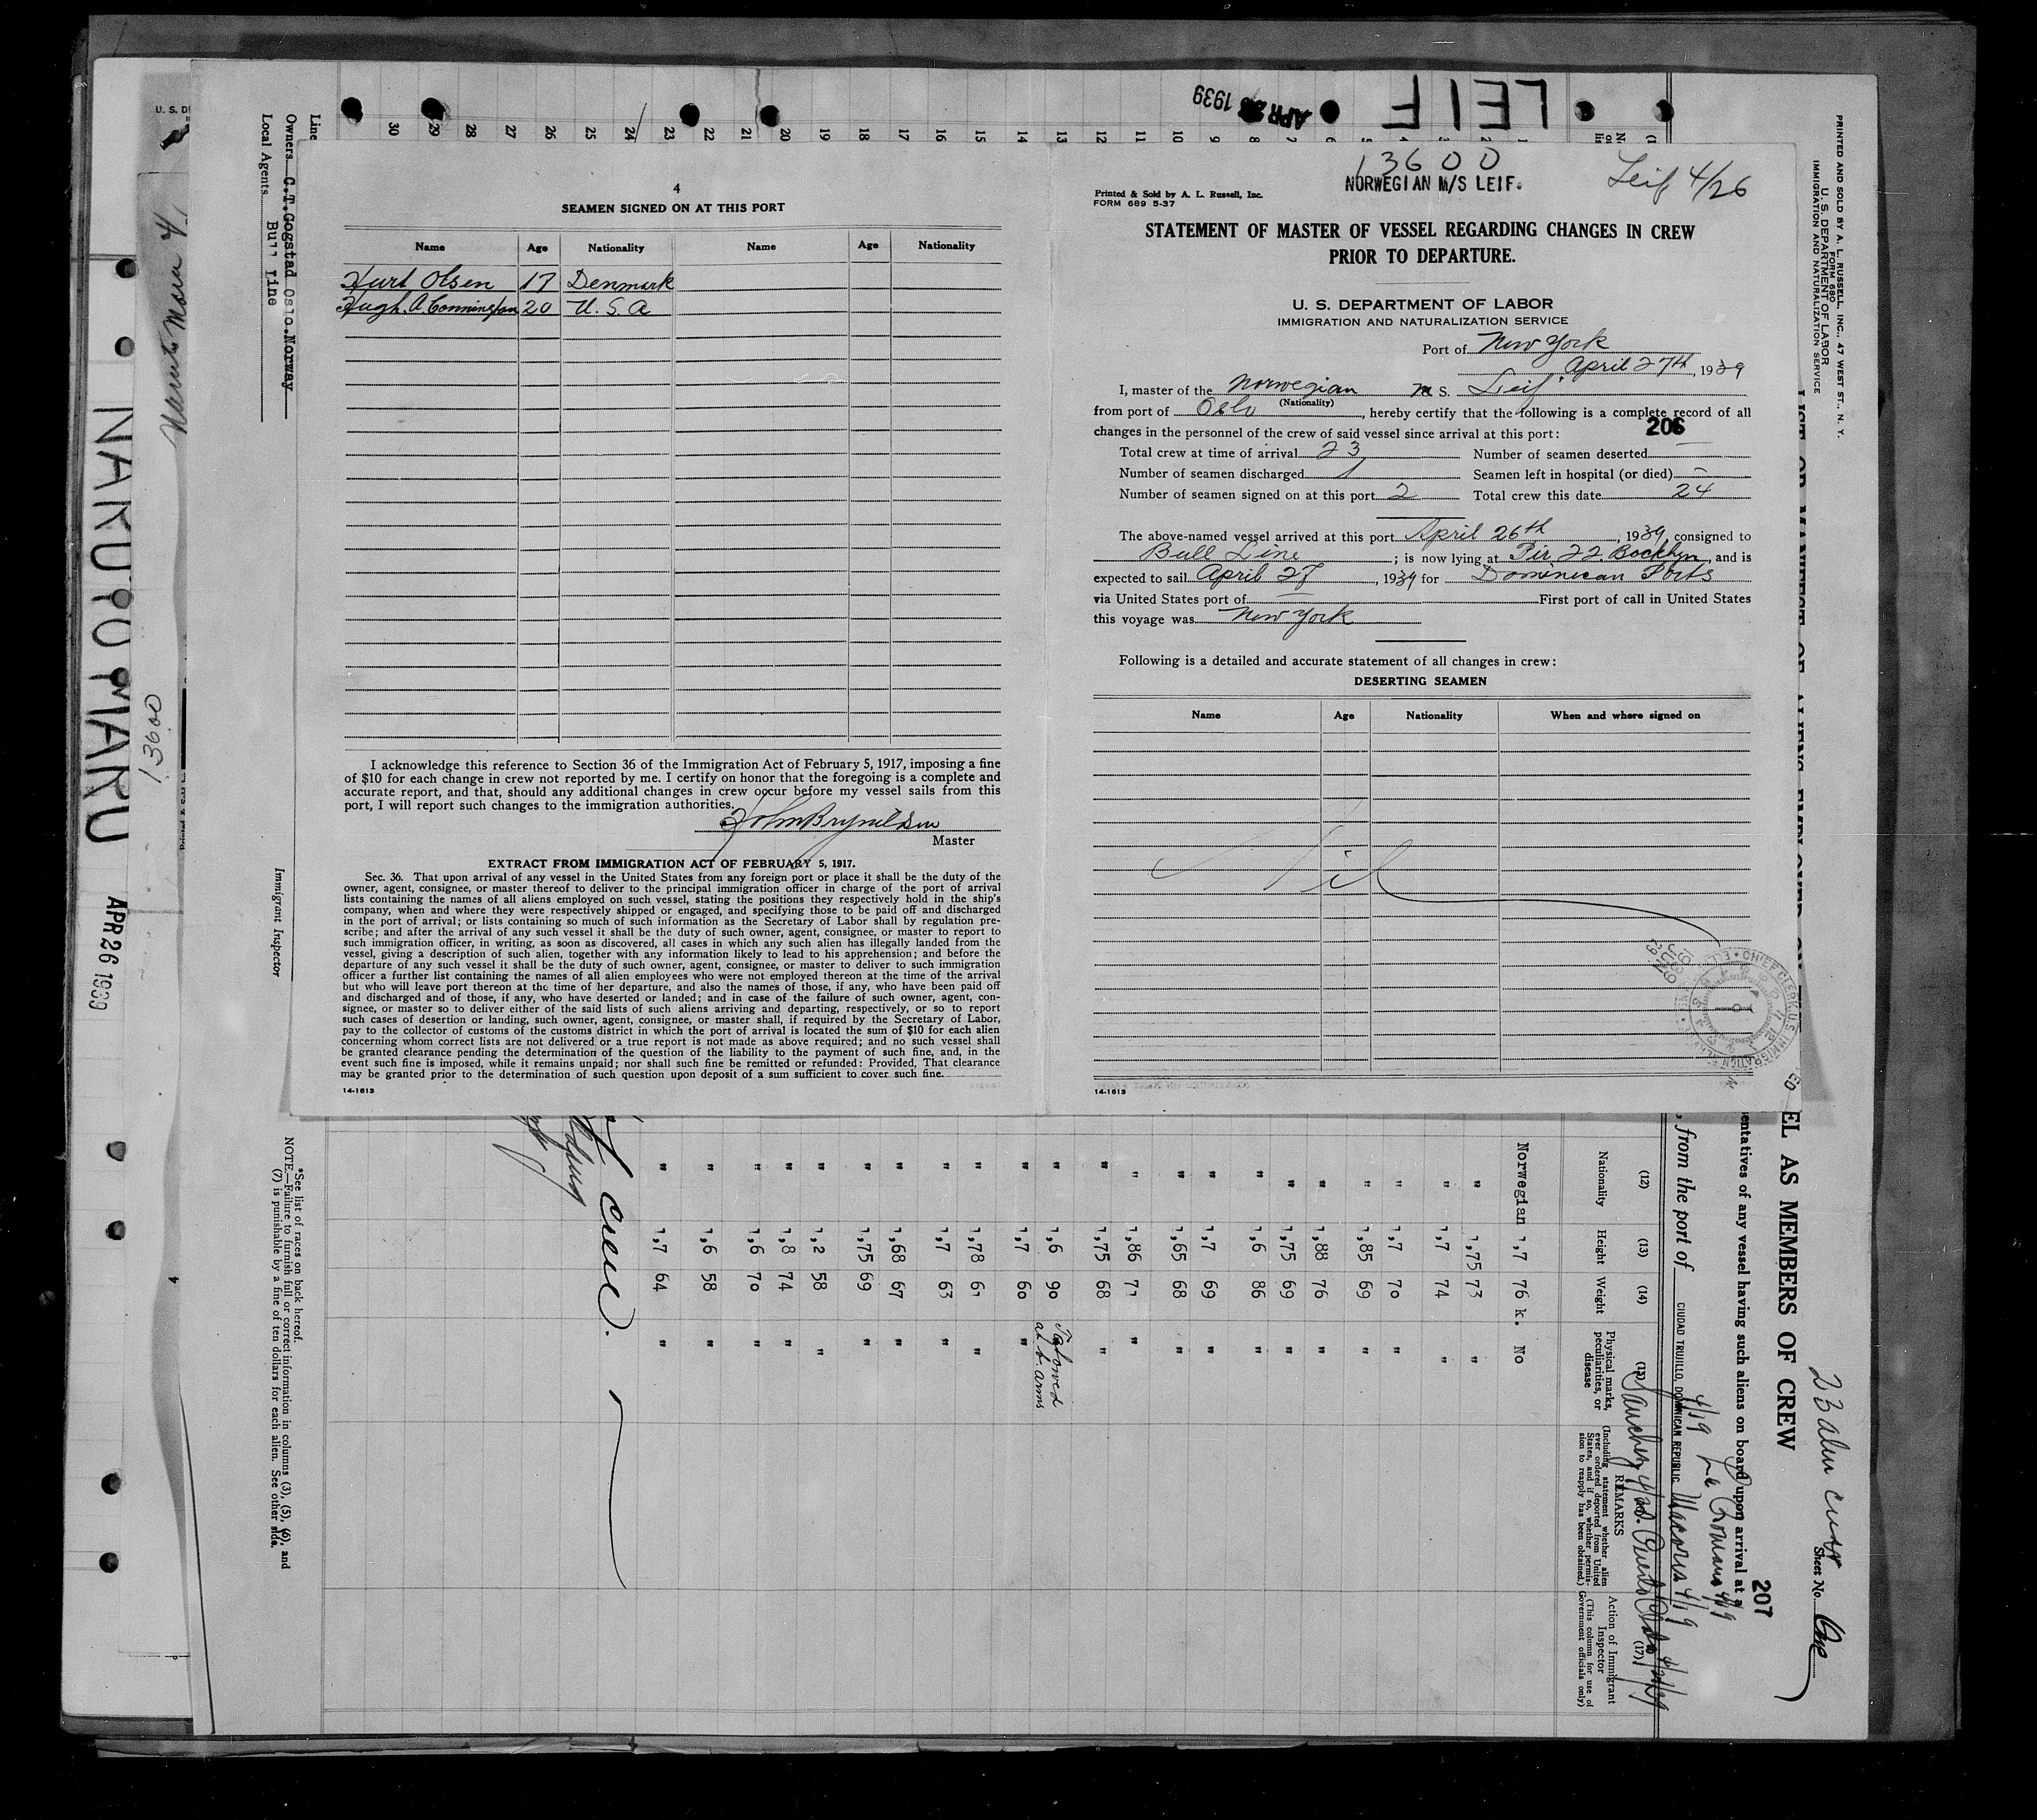 4
SEAMEN SIGNED ON AT THIS PORT
Name Age Nationality Name Age Nationality
Kurt Olsen 17 Denmark
Hugh. A. Connington 20 U.S.A
I acknowledge this reference to Section 36 of the Immigration Act of February 5, 1917, imposing a fine
of $10 for each change in crew not reported by me. I certify on honor that the foregoing is a complete and
accurate report, and that, should any additional changes in crew occur before my vessel sails from this
port, I will report such changes to the immigration authorities.
John Brynildsen
Master
EXTRACT FROM IMMIGRATION ACT OF FEBRUARY 5, 1917.
Sec. 36. That upon arrival of any vessel in the United States from any foreign port or place it shall be the duty of the
owner, agent, consignee, or master thereof to deliver to the principal immigration officer in charge of the port of arrival
lists containing the names of all aliens employed on such vessel, stating the positions they respectively hold in the ship's
company, when and where they were respectively shipped or engaged, and specifying those to be paid off and discharged
in the port of arrival; or lists containing so much of such information as the Secretary of Labor shall by regulation pre-
scribe; and after the arrival of any such vessel it shall be the duty of such owner, agent, consignee, or master to report to
such immigration officer, in writing, as soon as discovered, all cases in which any such alien has illegally landed from the
vessel, giving a description of such alien, together with any information likely to lead to his apprehension; and before the
departure of any such vessel it shall be the duty of such owner, agent, consignee, or master to deliver to such immigration
officer a further list containing the names of all alien employees who were not employed thereon at the time of the arrival
but who will leave port thereon at the time of her departure, and also the names of those, if any, who have been paid off
and discharged and of those, if any, who have deserted or landed; and in case of the failure of such owner, agent, con-
signee, or master so to deliver either of the said lists of such aliens arriving and departing, respectively, or so to report
such cases of desertion or landing, such owner, agent, consignee, or master shall, if required by the Secretary of Labor,
pay to the collector of customs of the customs district in which the port of arrival is located the sum of $10 for each alien
concerning whom correct lists are not delivered or a true report is not made as above required; and no such vessel shall
be granted clearance pending the determination of the question of the liability to the payment of such fine, and, in the
event such fine is imposed, while it remains unpaid; nor shall such fine be remitted or refunded: Provided, That clearance
may be granted prior to the determination of such question upon deposit of a sum sufficient to cover such fine.
14-1613
13600
NORWEGIAN M/S LEIF.
Leif 4/26
Printed & Sold by A. L. Russell, Inc.
FORM 689 5-37
STATEMENT OF MASTER OF VESSEL REGARDING CHANGES IN CREW
PRIOR TO DEPARTURE.
U. S. DEPARTMENT OF LABOR
IMMIGRATION AND NATURALIZATION SERVICE
Port of New York
April 27th, 1939
I, master of the Norwegian M S. Leif
(Nationality)
from port of Oslo, hereby certify that the following is a complete record of all
changes in the personnel of the crew of said vessel since arrival at this port:
206
Total crew at time of arrival 23 Number of seamen deserted —
Number of seamen discharged 1 Seamen left in hospital (or died) —
Number of seamen signed on at this port 2 Total crew this date 24
The above-named vessel arrived at this port April 26th, 1939, consigned to
Bull Line; is now lying at Pir 22. Bocklyn, and is
expected to sail April 27, 1939 for Dominican Ports
via United States port of — First port of call in United States
this voyage was New York
Following is a detailed and accurate statement of all changes in crew:
DESERTING SEAMEN
Name Age Nationality When and where signed on
Nil
14-1613
LEIF
APR 26 1939
PRINTED AND SOLD BY A. L. RUSSELL, INC., 47 WEST ST., N. Y.
FORM 680
U. S. DEPARTMENT OF LABOR
IMMIGRATION AND NATURALIZATION SERVICE
Sheet No. One
207
EL AS MEMBERS OF CREW
entatives of any vessel having such aliens on board upon arrival at a
, from the port of CIUDAD TRUJILLO, DOMINICAN REPUBLIC Macoris 4/19
4/19 La Romana 4/19
(12) (13) (14) (15) (17)
Nationality Height Weight Physical marks, peculiarities, or disease
REMARKS
(Including statement whether alien ever ordered deported from United States, and if so, whether permission to reapply has been obtained.)
Action of Immigrant Inspector
(This column for use of Government officials only)
Norwegian 1,7 76 k. No
" 1,75 73 "
" 1,7 74 "
" 1,7 70 "
" 1,85 69 "
" 1,88 76 "
" 1,75 69 "
" 1,6 86 "
" 1,7 69 "
" 1,65 68 "
" 1,86 71 "
" 1,75 68 "
" 1,6 90 Tatowed at b. arms
" 1,7 60 "
" 1,78 61 "
" 1,7 63 "
" 1,68 67 "
" 1,75 69 "
" 1,2 58 "
" 1,8 74 "
" 1,6 70 "
" 1,6 58 "
" 1,7 64 "
Line
5 6 7 8 9 10 11 12 13 14 15 16 17 18 19 20 21 22 23 24 25 26 27 28 29 30
Owners C.T.Gogstad Oslo.Norway
Local Agents Bull Line
Immigrant Inspector
*See list of races on back hereof.
NOTE.—Failure to furnish full or correct information in columns (3), (5), (6), and
(7) is punishable by a fine of ten dollars for each alien. See other side.
NARUTO MARU
APR 26 1939
13600
4